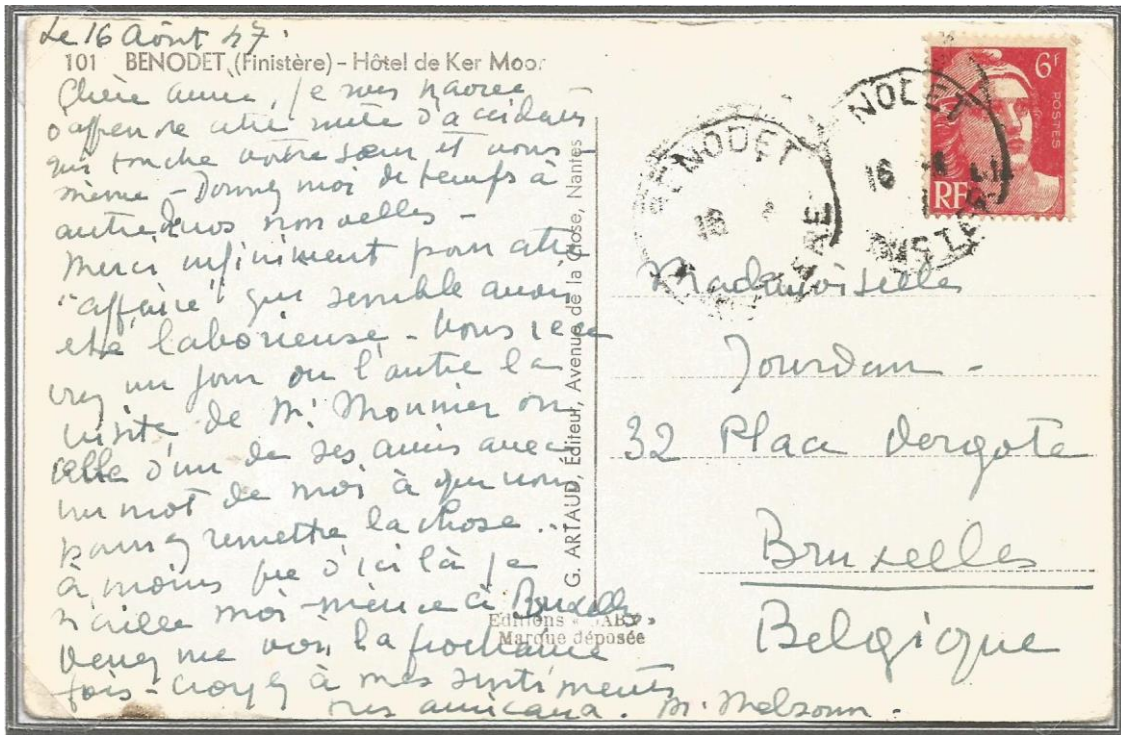 Le 16 Août 47.
101 BENODET (Finistère) – Hôtel de Ker Moor
Chère amie, je suis navrée
d'apprendre cette suite d'accidents
qui touche votre sœur et vous-
même – Donnez moi de temps à
autre de vos nouvelles –
Merci infiniment pour cette
"affaire" qui semble avoir
été laborieuse – Vous rece
vrez un jour ou l'autre la
visite de Mr Mounier ou
celle d'un de ses amis avec
un mot de moi à qui vous
pourrez remettre la chose...
à moins que d'ici là je
n'aille moi-même à Bruxelles
Venez me voir la prochaine
fois – croyez à mes sentiments
très amicaux. M.
G. ARTAUD, Éditeur, Avenue de la Close, Nantes
Editions « GABY »
Marque déposée
BENODET
16
BENODET
16
FINISTERE
6F
POSTES
RF
Mademoiselle
Jourdan –
32 Place Vergote
Bruxelles
Belgique